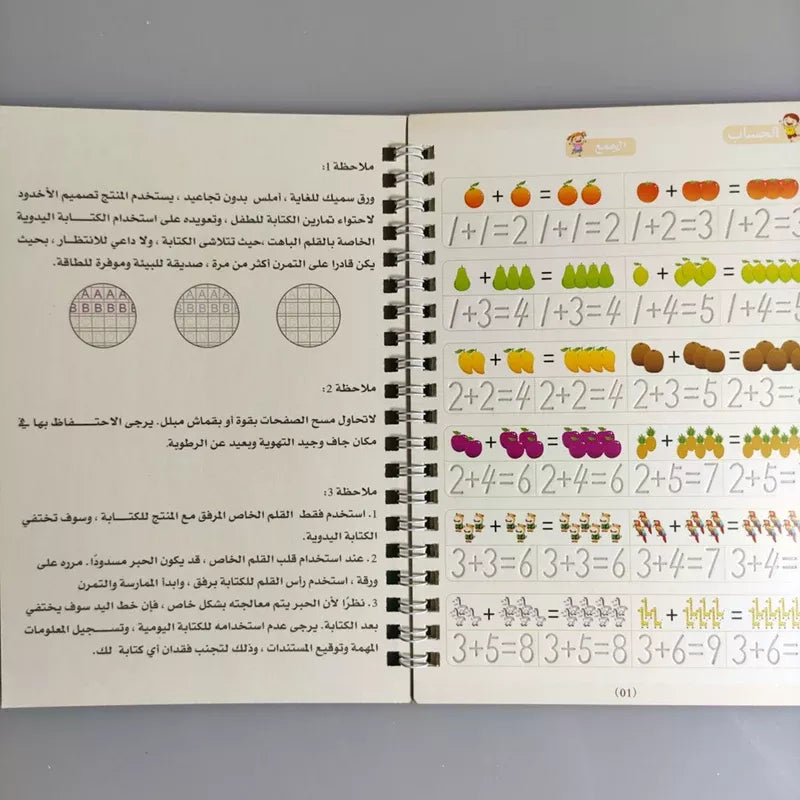 ملاحظة 1:
ورق سميك للغاية ، أملس بدون تجاعيد ، يستخدم المنتج تصميم الأخدود
لاحتواء تمارين الكتابة للطفل ، وتعويده على استخدام الكتـــابة اليدوية
الخاصة بالقلم الباهت ،حيث تتلاشى الكتابة ، ولا داعي للانتظار ، بحيث
يكن قادرا على التمرن أكثر من مرة ، صديقة للبيئة وموفرة للطاقة.
A A A A
B B B B B
A A A A
B B B B B
ملاحظة 2:
لاتحاول مسح الصفحات بقوة أو بقماش مبلل. يرجى الاحتــفـــاظ بها في
مكان جاف وجيد التهوية وبعيد عن الرطوبة.
ملاحظة 3:
1. استخدم فقط القلم الخاص المرفق مع المنتج للكتــابة ، وسوف تختفي
الكتابة اليدوية.
2. عند استخدام قلب القلم الخاص ، قد يكون الحبر مسدودًا. مرره على
ورقة ، استخدم رأس القلم للكتابة برفق ، وابدأ الممارسة والتمرن
3. نظرًا لأن الحبر يتم معالجته بشكل خاص ، فإن خط اليد سوف يختفي
بعد الكتابة. يرجى عدم استخدامه للكتابة اليومية ، وتســجيل المعلومات
المهمة وتوقيع المستندات ، وذلك لتجنب فقدان أي كتابة لك.
الحساب
الجمع
+ = + =
1+1=2 1+1=2 1+2=3 1+2=3
+ = + =
1+3=4 1+3=4 1+4=5 1+4=5
+ = + =
2+2=4 2+2=4 2+3=5 2+3=
+ = + =
2+4=6 2+4=6 2+5=7 2+5=
+ = + =
3+3=6 3+3=6 3+4=7 3+4=
+ = + =
3+5=8 3+5=8 3+6=9 3+6=
(01)